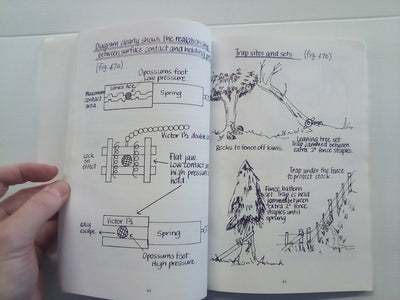 Diagram clearly shows the
between surface contact and holding
(fig. 47a)
Opossums foot
Low pressure
Lanes Ace
Maximum
contact
area
Spring
Victor 1½ double
Lock on
effect
Flat jaw
Low contact
high pressure
hold.
Victor 1½
easy
escape
Spring
Opossums foot
High pressure
Trap sites and sets
(fig. 47b)
Rocks to fence off kiwis.
Leaning tree set.
Trap jammed between
extra 2" fence staples.
Trap under the fence
to protect stock
Fence battern
set. Trap is held
jammed between
extra 2" fence
staples until
sprung